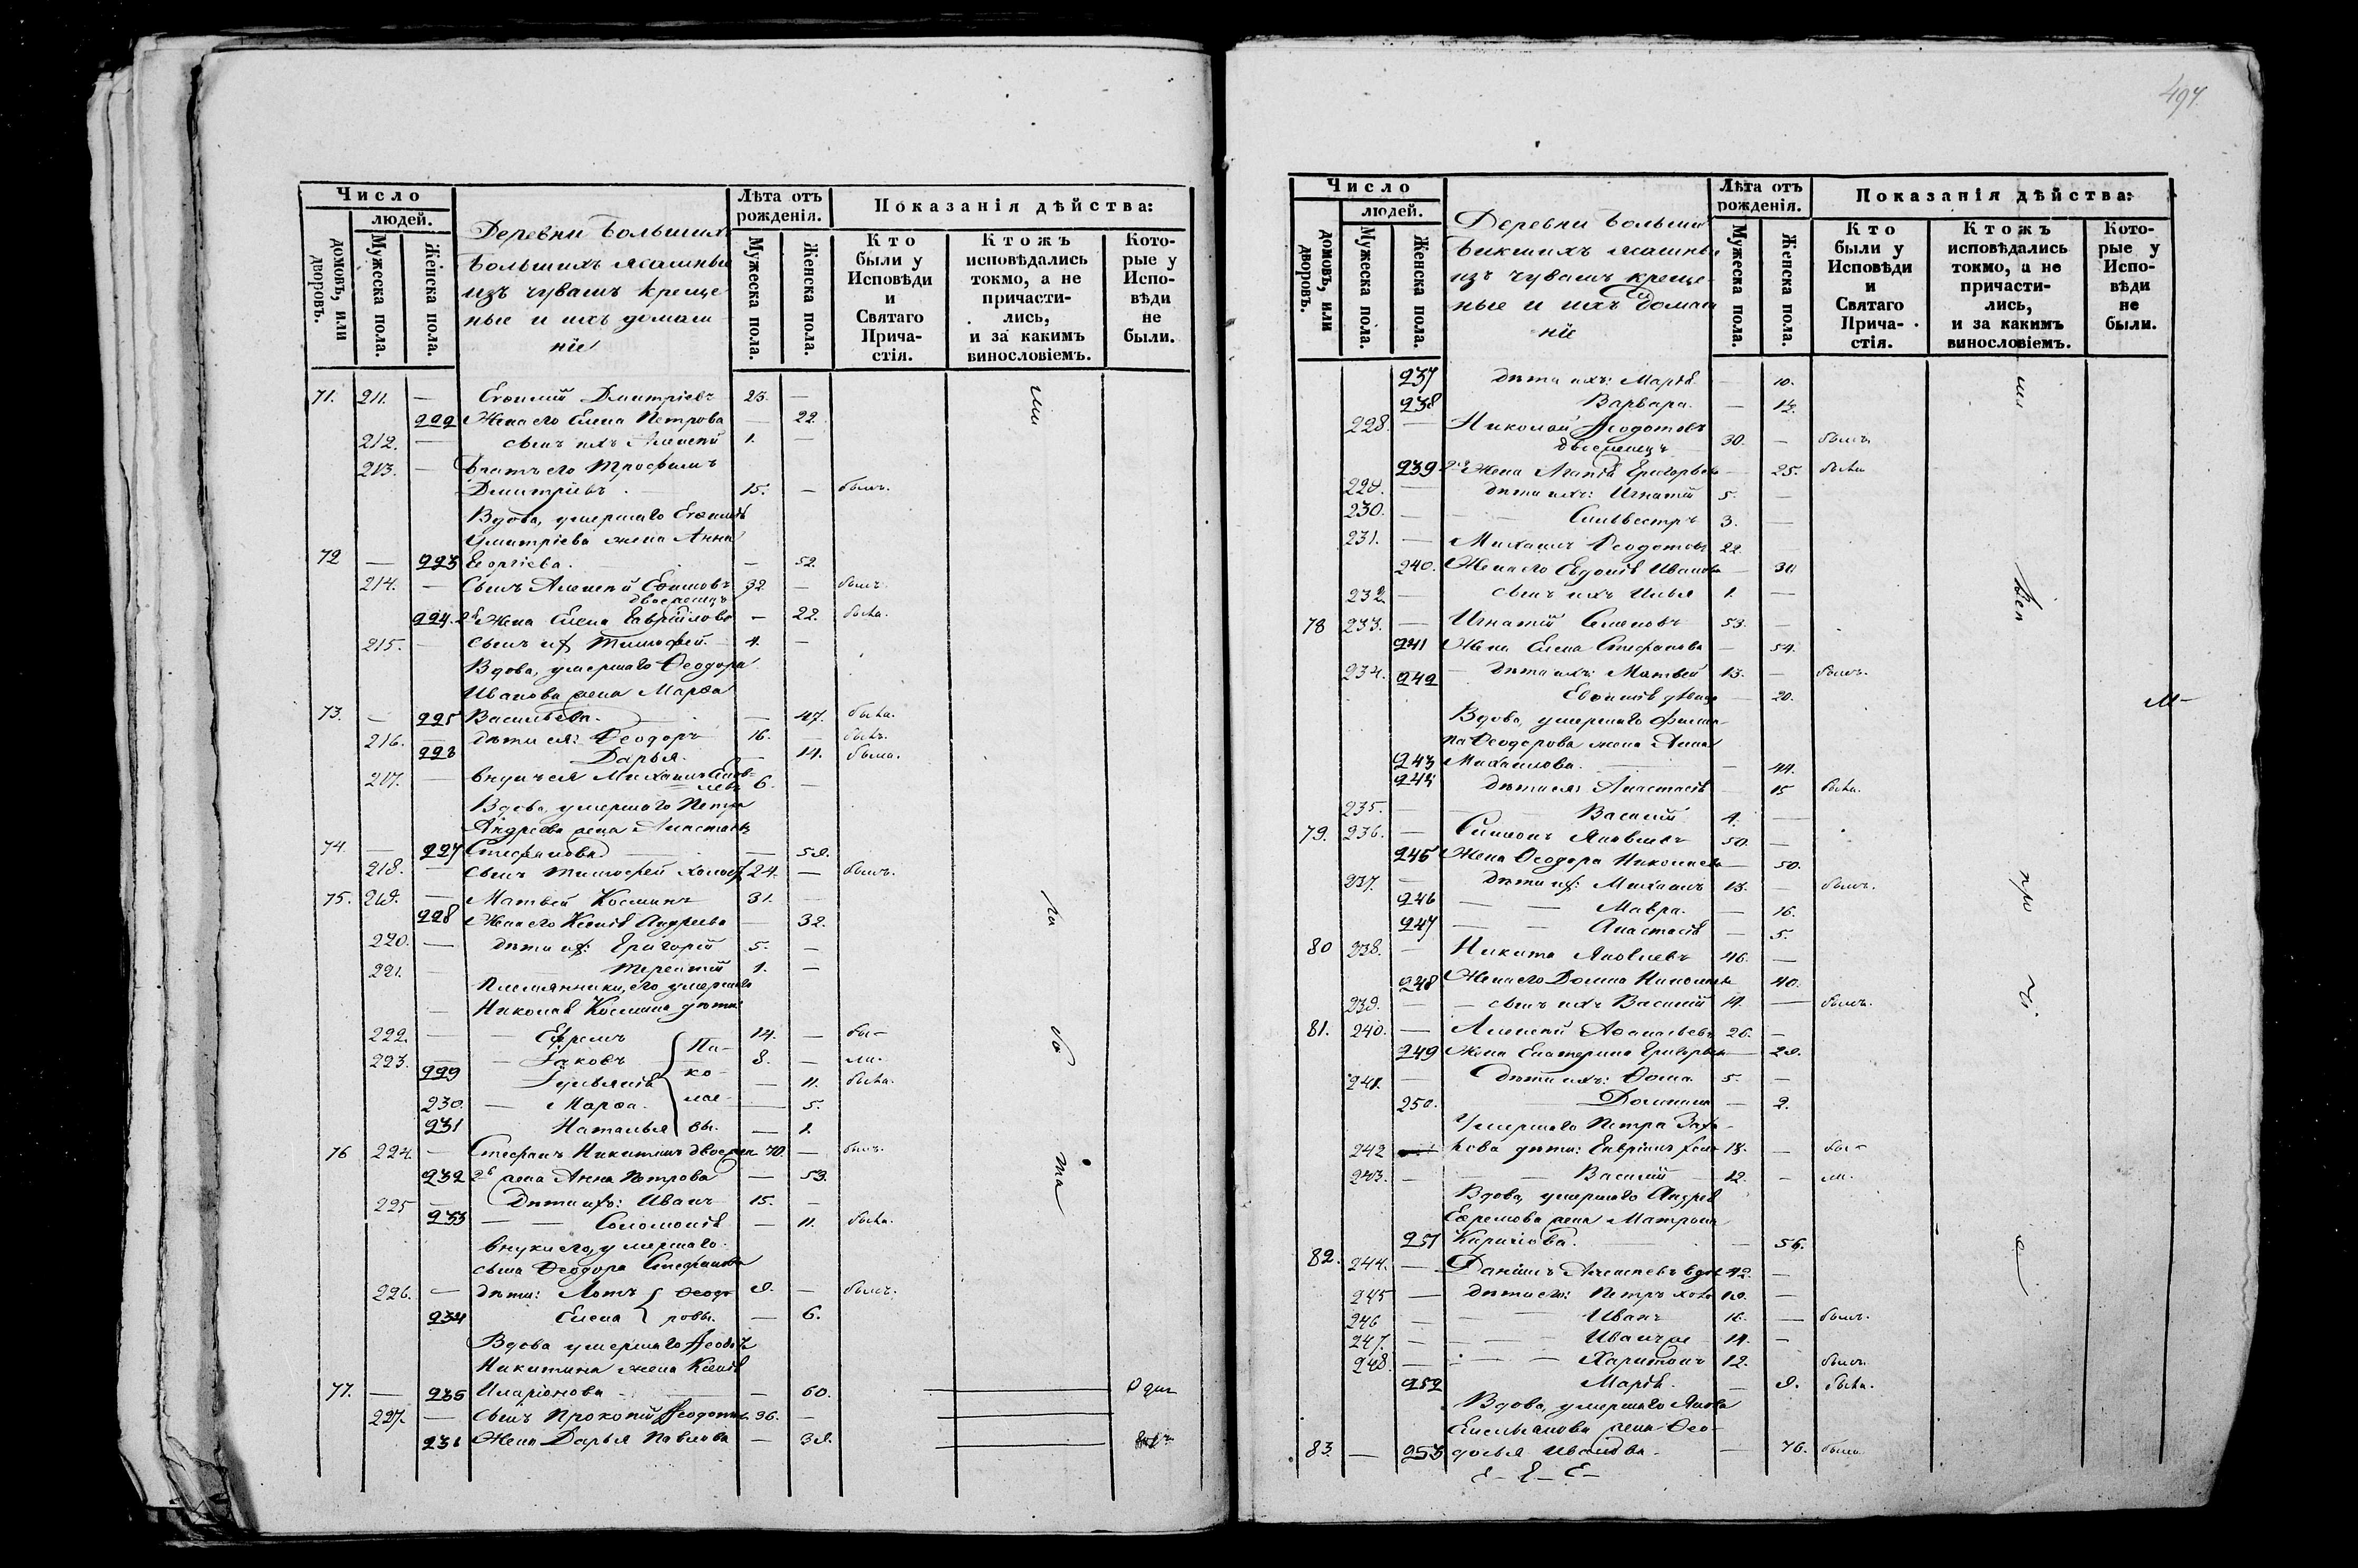 Число
людей.
домовъ, или дворовъ.
Мужеска пола.
Женска пола.
Деревни Большихъ
ясашные
изъ чувашъ креще
ные и ихъ домаш
ніе
Лѣта отъ рожденія.
Мужеска пола.
Женска пола.
Показанія дѣйства:
Кто были у Исповѣди и Святаго Прича-стія.
Ктожъ исповѣдались токмо, а не причасти-лись, и за какимъ винословіемъ.
Кото-рые у Испо-вѣди не были.
71. 211. — Евѳимій Дмитріевъ 25. —
222 Жена его Елена Петрова — 22
212. — сынъ ихъ Алексѣй 1. —
213. — Братъ его Трофимъ
Дмитріевъ 15. — былъ.
Вдова, умершаго Евѳимія
Дмитріева жена Анна
72 — 223 Георгіева. — 52
214. — Сынъ Алексѣй Ефимовъ 32 — былъ
двоеженецъ
224. 2я Жена Елена Гавриилова — 22. была.
215. — сынъ их Тимофей. 4. —
Вдова, умершаго Ѳеодора
Иванова жена Марѳа
73. — 225 Васильева. — 47. была.
216. — дѣти ея: Ѳеодоръ 16. — былъ.
226 Дарья. — 14. была.
217. — внукъ ея Михаилъ 6. —
Вдова, умершаго Петра
Андреева жена Анастасія
74 — 227 Стефанова — 59.
218. — сынъ Тимофей холост 24. — былъ.
75. 219. — Матвей Косминъ 31. —
228 Жена его Ксенія Андреева — 32.
220. — дѣти их: Григорій 5. —
221. — Терентій 1. —
Племянники, его умершаго
Николая Космина дѣти:
222. — Ефремъ 14. — бы-
223. — Іаковъ 8. — ли.
229 Іуліанія — 11. была.
230. — Марѳа. — 5.
231 Наталья — 1.
Ни-
ко-
лае-
вы.
76 224. — Стефанъ Никитинъ двоежен 70. — былъ.
232 2я жена Анна Петрова — 53.
225 — Дѣти ихъ: Иванъ 15. —
233 — — Соломонія — 11. была.
внуки его, умершаго
сына Ѳеодора Стефанова
226. — дѣти: Лотъ Ѳеодо 9. — былъ.
234 Елена ровы. — 6.
Вдова умершаго Ѳеодота
Никитина жена Ксенія
77. — 235 Иларіонова — 60.
227. — сынъ Прокопій Ѳеодотов. 36. —
236 Жена Дарья Павлова — 39.
497.
Число
людей.
домовъ, или дворовъ.
Мужеска пола.
Женска пола.
Деревни Большихъ
ясашные
изъ чувашъ креще-
ные и ихъ домаш
ніе
Лѣта отъ рожденія.
Мужеска пола.
Женска пола.
Показанія дѣйства:
Кто были у Исповѣди и Святаго Прича-стія.
Ктожъ исповѣдались токмо, а не причасти-лись, и за какимъ винословіемъ.
Кото-рые у Испо-вѣди не были.
237 дѣти ихъ: Марія. — 10.
238 Варвара. — 12.
228. — Николай Ѳеодотовъ
двоеженецъ 30. — былъ.
239 2я Жена Агапія Григорьева — 25. была
229. — дѣти ихъ: Игнатій 5. —
230. — — Сильвестръ 3. —
231. — Михаилъ Ѳеодотовъ 22.
240. Жена его Евдокія Иванова — 30
232 — сынъ ихъ Илья 1. —
78 233. — Игнатій Семеновъ 53. —
241 Жена Елена Стефанова — 54.
234. 242 — дѣти ихъ: Матвей 13. — былъ.
Евѳимія дѣвица — 20.
Вдова, умершаго Филип-
па Ѳеодорова жена Анна
243 Михаилова. — 44.
244 дѣти ея: Анастасія 15 была.
235. — — Василій 4. —
79. 236. — Симеонъ Яковлевъ 50. —
245 Жена Ѳеодора Николаева — 50.
237. — дѣти их: Михаилъ 13. — былъ.
246 — — Мавра. — 16.
247 — — Анастасія — 5.
80 238. — Никита Яковлевъ 46. —
248 Жена его Домна — 40.
239. — — сынъ ихъ Василій 14. — былъ.
81. 240. — Алексѣй Аѳанасьевъ 26. —
249 Жена Екатерина Григорьева — 29.
241. — дѣти ихъ: Ѳома 5. —
250. — — 2.
Умершаго Петра Заха-
242 — рова дѣти: Гавріилъ 18. — бы-
243. — — Василій 12. — ли.
Вдова, умершаго Андрея
Ефремова жена Матрона
251 Кирилова. — 56.
82. 244. — Даніилъ Алексѣевъ вдов 42. —
245 — дѣти его: Петръ —
246 — — Иванъ 16. — былъ.
247. — — Иванъ же 14. —
248. — — Харитонъ 12. былъ.
252 Марія. — 9. была.
Вдова, умершаго Якова
Емельянова жена Ѳео-
83. — 253 досья Иванова. — 76. была